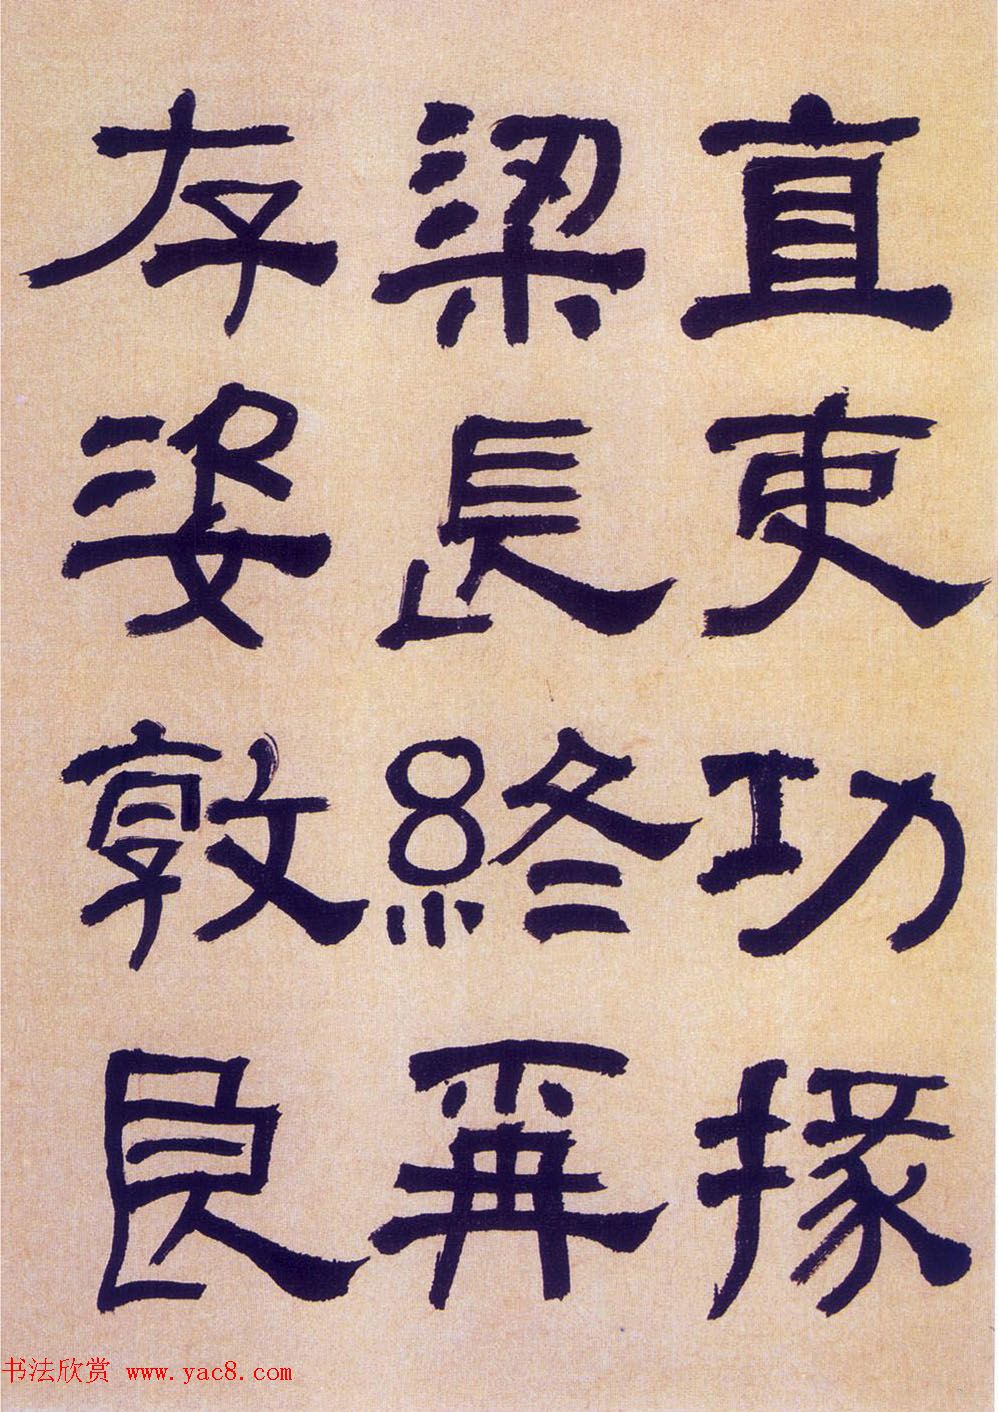 直吏功掾
梁長終再
存姿敦良
书法欣赏 www.yac8.com